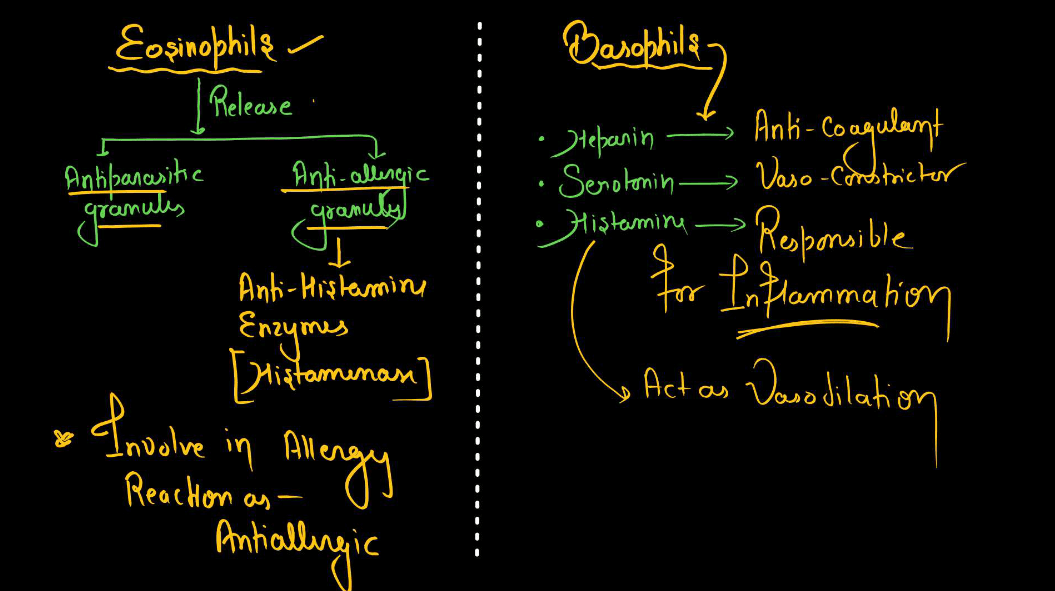 Eosinophils
Release
Antiparasitic
granules
Anti-allergic
granules
Anti-Histamine
Enzymes
[Histaminase]
Involve in Allergy
Reaction as —
Antiallergic
Basophils
• Heparin → Anti-Coagulant
• Serotonin → Vaso-Constrictor
• Histamine → Responsible
for Inflammation
Act as Vasodilation